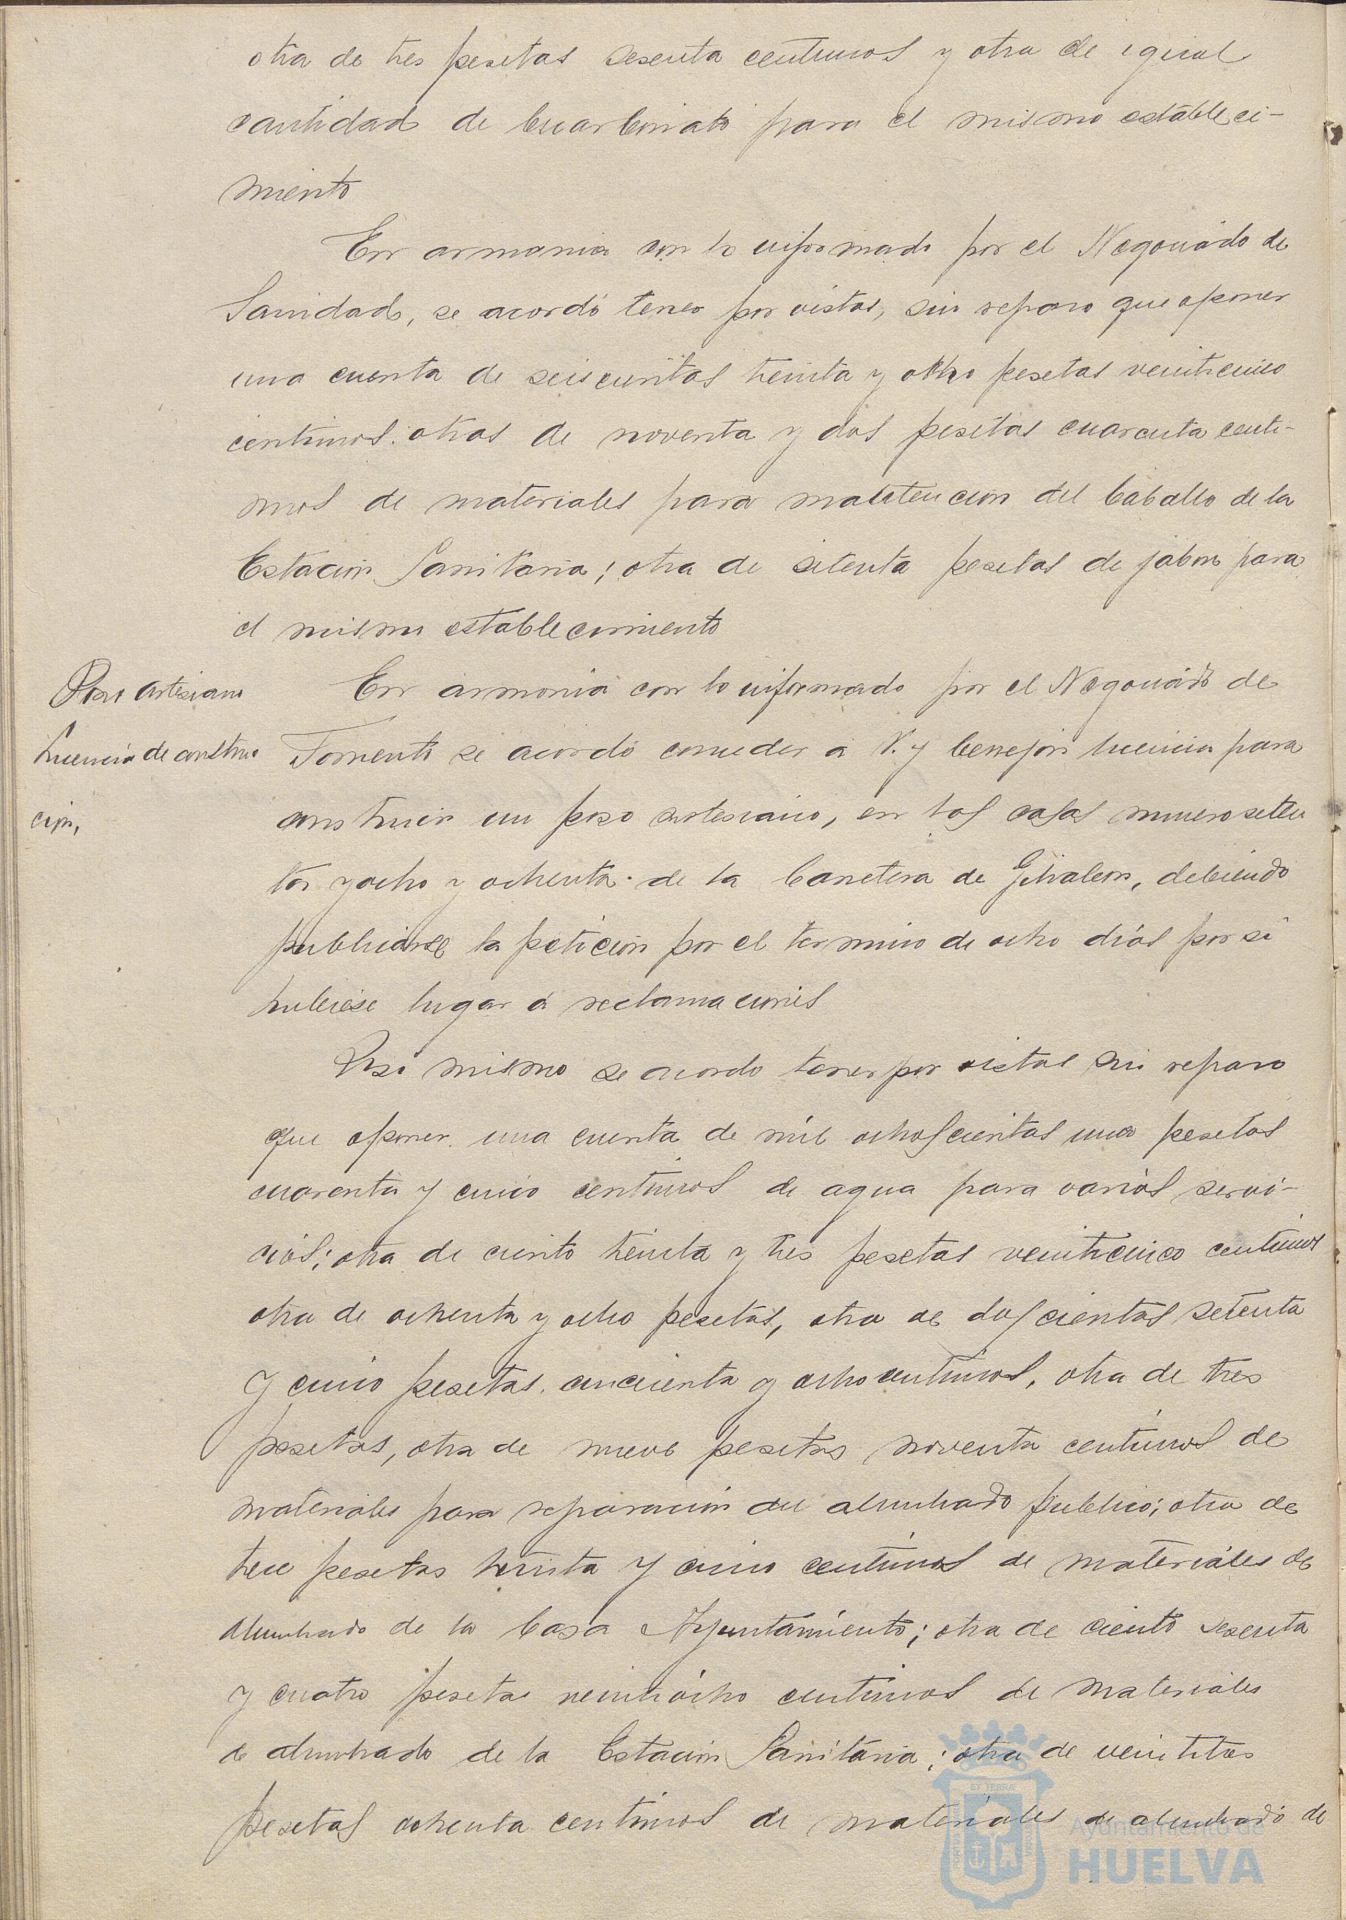 otra de tres pesetas sesenta centimos y otra de igual
cantidad de bicarbonato para el mismo estableci-
miento
En armonia con lo informado por el Negociado de
Sanidad, se acordó tener por vistas, sin reparo que oponer
una cuenta de seiscientas treinta y ocho pesetas veinticinco
centimos. otras de noventa y dos pesetas cuarenta centi-
mos de materiales para manutencion del Caballo de la
Estacion Sanitaria; otra de setenta pesetas de jabon para
el mismo establecimiento
Poso artesiano
Licencia de construc
cion,
En armonia con lo informado por el Negociado de
Fomento se acordó conceder a V. y Cerrejón licencia para
construir un poso artesiano, en las casas numero seten
ta y ocho y ochenta de la Carretera de Gibraleon, debiendo
publicarse la peticion por el termino de ocho dias por si
hubiese lugar á reclamaciones
Asi mismo se acordo tener por vistas sin reparo
que oponer. una cuenta de mil ochoscientas una pesetas
cuarenta y cinco centimos de agua para varios servi-
cios; otra de ciento treinta y tres pesetas veinticinco centimos
otra de ochenta y ocho pesetas, otra de doscientas setenta
y cinco pesetas. cincuenta y ocho centimos, otra de tres
pesetas, otra de nueve pesetas noventa centimos de
materiales para reparación del alumbrado publico; otra de
trece pesetas treinta y cinco centimos de materiales de
alumbrado de la Casa Ayuntamiento; otra de ciento sesenta
y cuatro pesetas veintiocho centimos de materiales
de alumbrado de la Estacion Sanitaria; otra de veintitres
pesetas ochenta centimos de materiales de alumbrado de
Ayuntamiento de
HUELVA